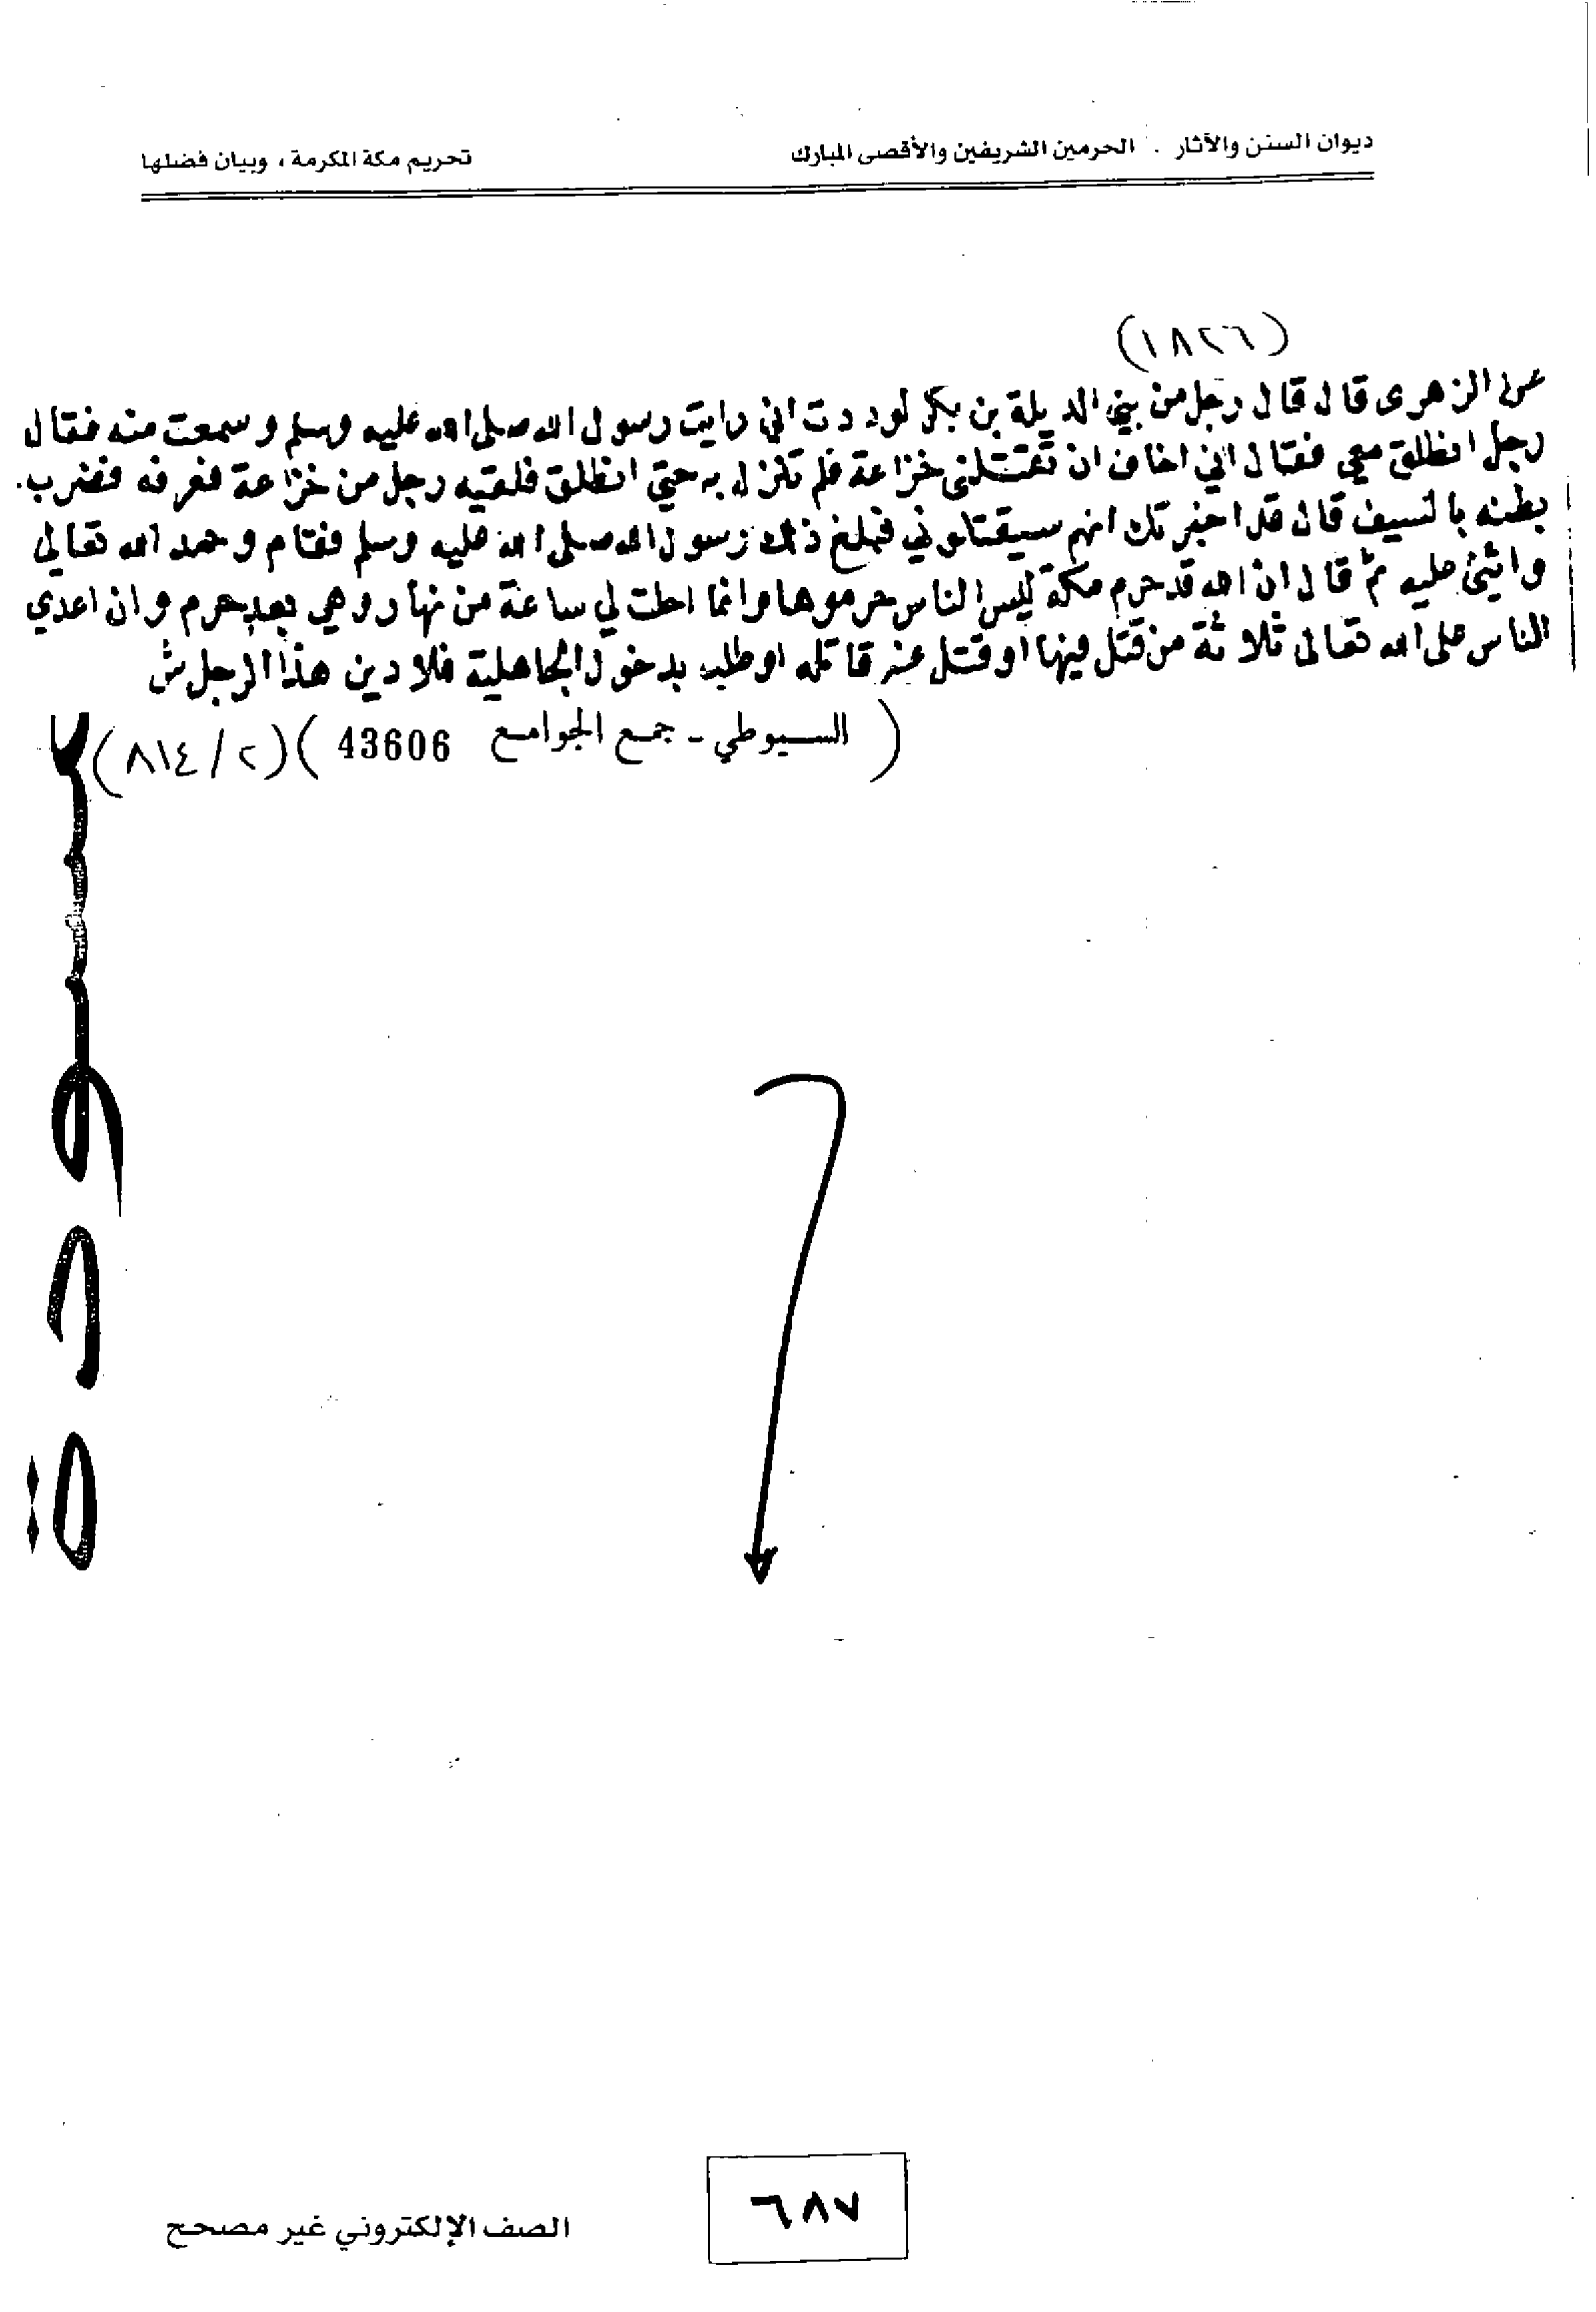 ديوان السنن والآثار . الحرمين الشريفين والأقصى المبارك
تحريم مكة المكرمة ، وبيان فضلها
(١٨٢٦)
عن الزهرى قال قال رجل من بني الديلة بن بكر لوددت اني رايت رسول الله صلى الله عليه وسلم وسمعت منه فقال
رجل انطلق معي فقال اني اخاف ان تقتلني خزاعة فلم تزل به حتي انطلق فلقيه رجل من خزاعة فعرفه فضرب
بطنه بالسيف قال قد اخبرتك انهم سيقتلوني فبلغ ذلك رسول الله صلى الله عليه وسلم فقام وحمد الله تعالى
واثنى عليه ثم قال ان الله قد حرم مكة ليس الناس حرموها وانما احلت لي ساعة من نهار وهي بعد حرم وان اعدي
الناس على الله تعالى ثلاثة من قتل فيها او قتل غير قاتله او طلب بدخول الجاهلية فلا دين هذا الرجل ش
( السيوطي - جمع الجوامع 43606 ) (٢/٨١٤)
مسودة
٦٨٧
الصف الإلكتروني غير مصحح